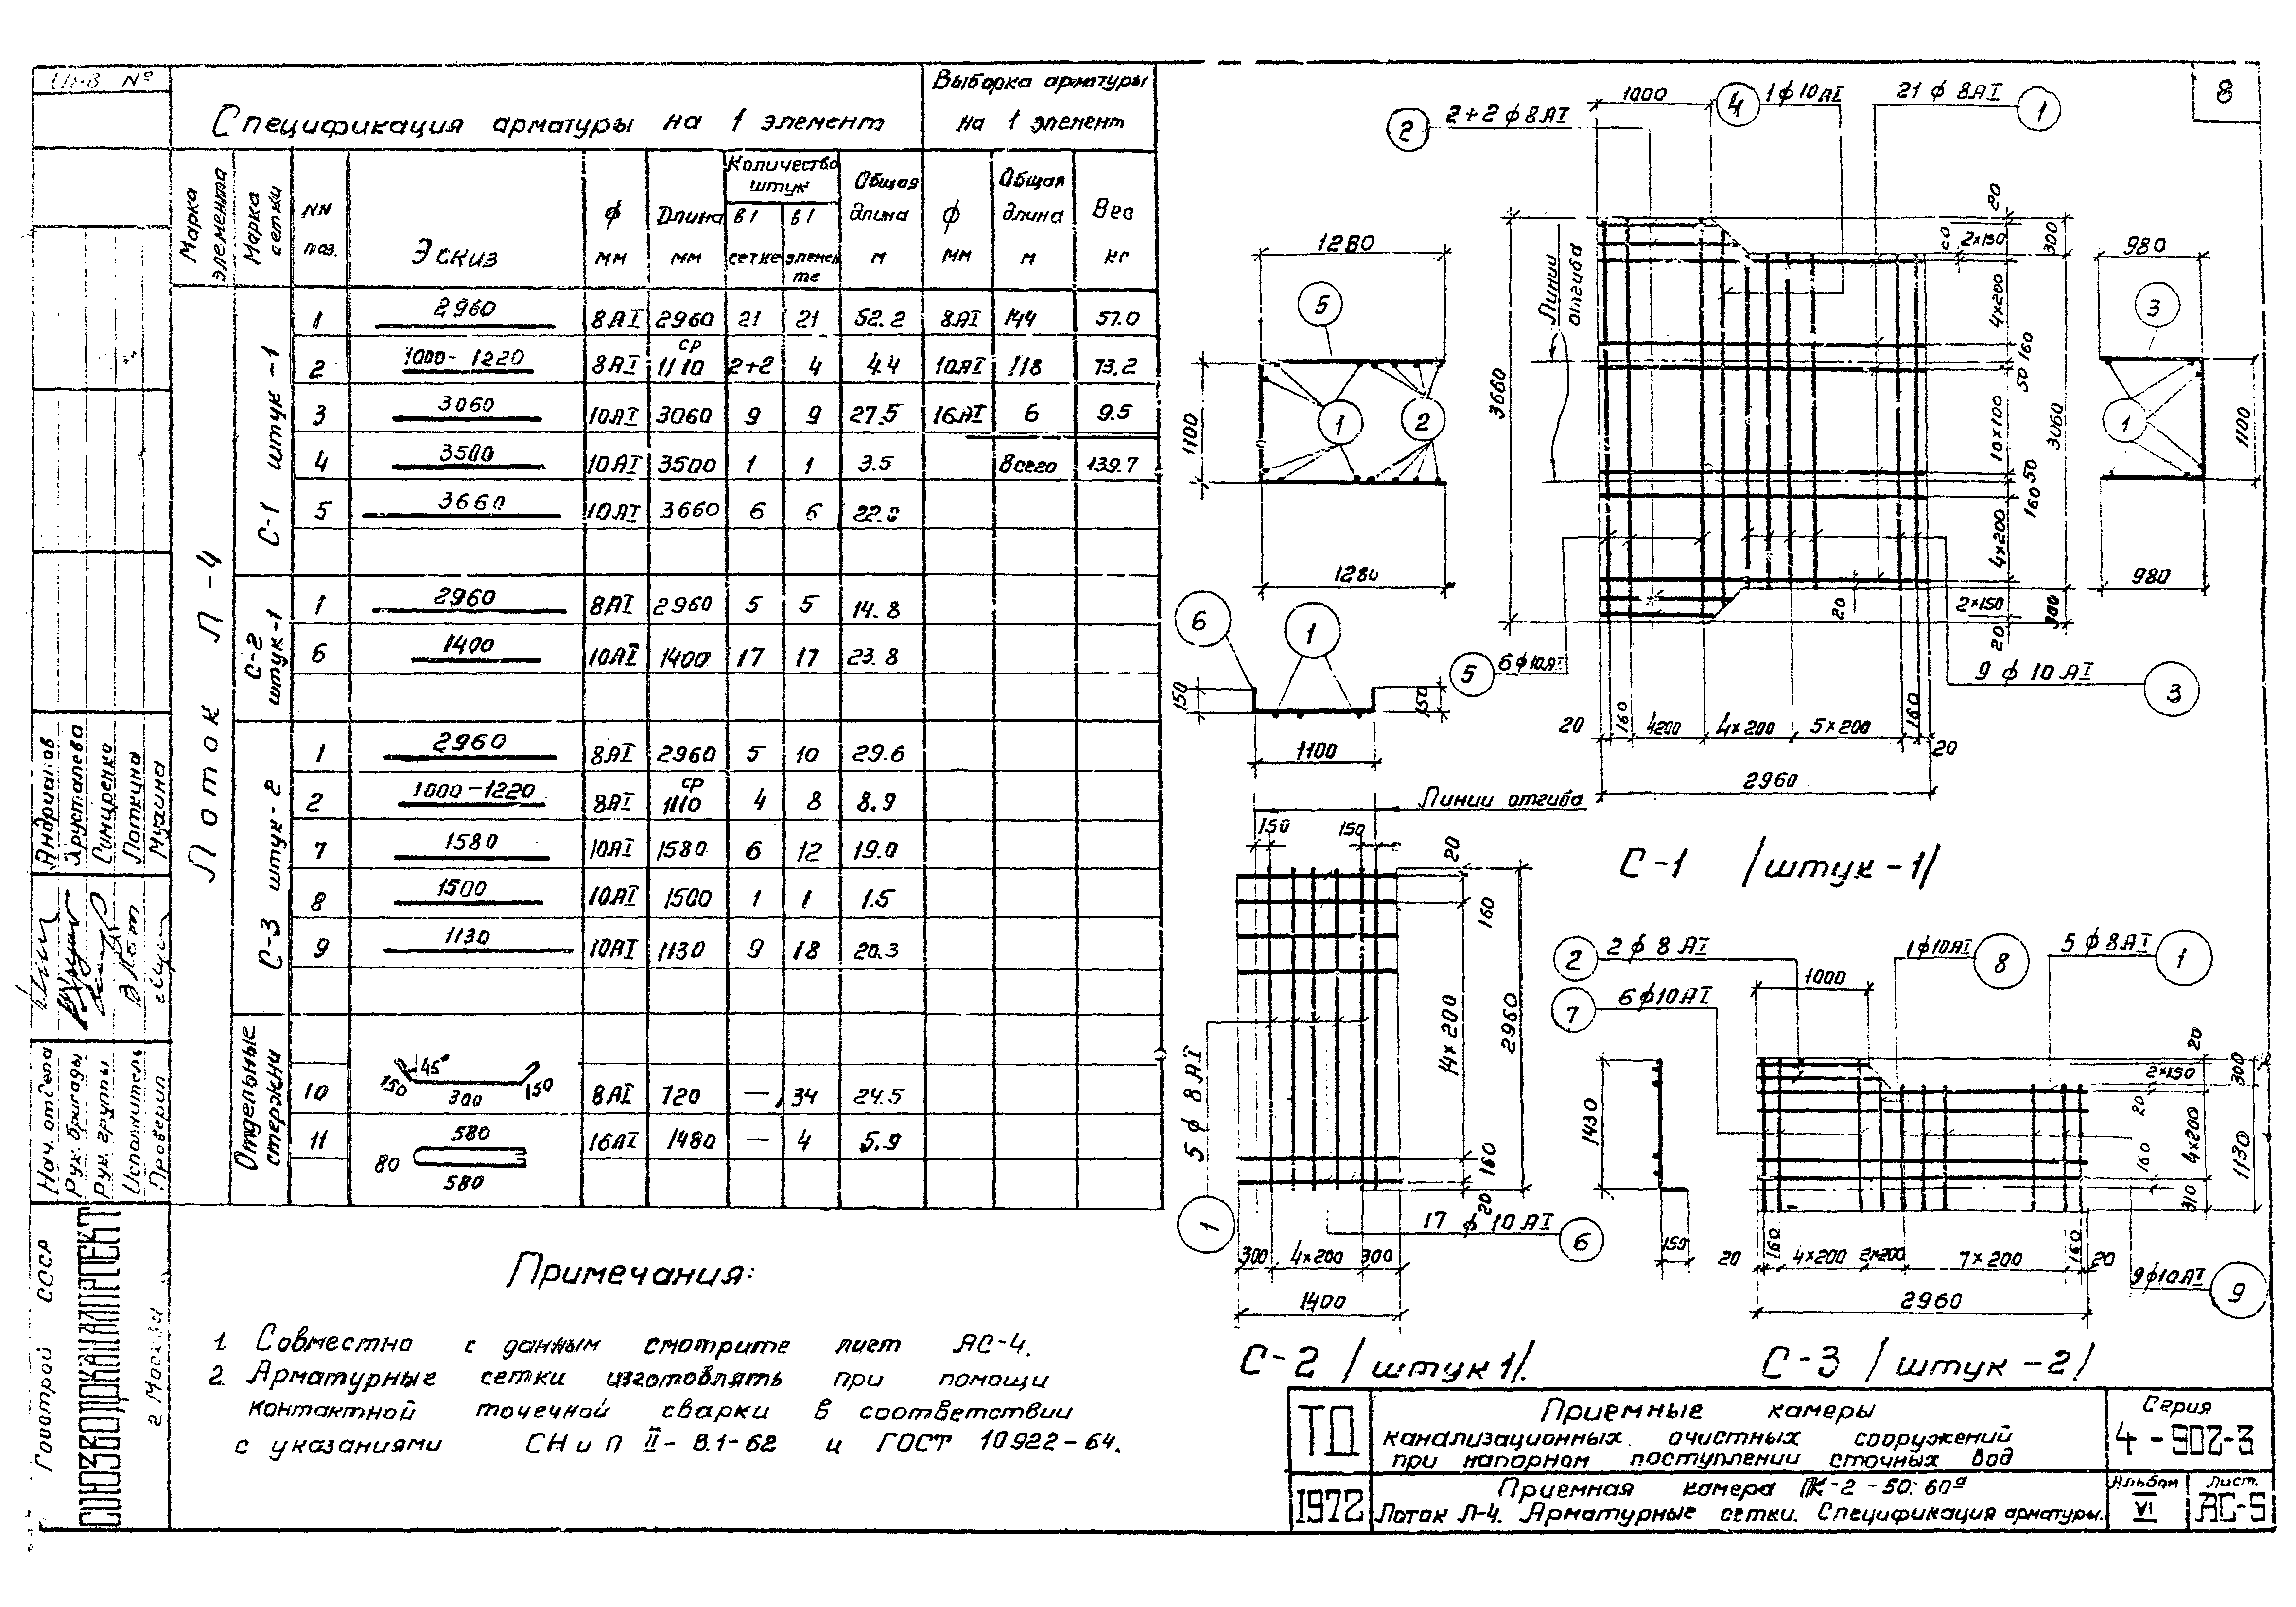 Инв №
8
Спецификация арматуры на 1 элемент
Выборка арматуры
на 1 элемент
Марка элемента
Марка сетки
NN поз.
Эскиз
ф мм
Длина мм
Количество штук
в 1 сетке
в 1 элемен те
Общая длина м
ф мм
Общая длина м
Вес кг
Лоток Л-4
С-1 штук-1
1 2960 8АI 2960 21 21 52.2 8АI 144 57.0
2 1000-1220 8АI ср 1110 2+2 4 4.4 10АI 118 73.2
3 3060 10АI 3060 9 9 27.5 16АI 6 9.5
4 3500 10АI 3500 1 1 3.5 Всего 139.7
5 3660 10АI 3660 6 6 22.0
С-2 штук-1
1 2960 8АI 2960 5 5 14.8
6 1400 10АI 1400 17 17 23.8
С-3 штук-2
1 2960 8АI 2960 5 10 29.6
2 1000-1220 8АI ср 1110 4 8 8.9
7 1580 10АI 1580 6 12 19.0
8 1500 10АI 1500 1 1 1.5
9 1130 10АI 1130 9 18 20.3
Отдельные стержни
10 150 45° 300 150 8АI 720 — 34 24.5
11 580 80 580 16АI 1480 — 4 5.9
Примечания:
1. Совместно с данным смотрите лист АС-4.
2. Арматурные сетки изготовлять при помощи
контактной точечной сварки в соответствии
с указаниями СНиП II-В.1-62 и ГОСТ 10922-64.
1280
5
1100
1
2
1280
6
1
150
150
1100
2
2+2ф8АI
1000
4
1ф10АI
21ф8АI
1
Линии отгиба
3660
20
2×150
300
20
4×200
160
50
10×100
3060
50
160
4×200
2×150
300
20
20
5
6ф10АI
9ф10АI
3
20
160
4200
4×200
5×200
160
20
2960
С-1 /штук-1/
980
3
1
1100
980
Линии отгиба
150
150
20
160
14×200
2960
160
20
5ф8АI
1
17ф10АI
6
300
4×200
300
1400
С-2 /штук 1/.
2
2ф8АI
7
6ф10АI
1000
1ф10АI
8
5ф8АI
1
1430
150
20
2×150
300
20
4×200
160
1130
310
20
160
4×200
2×200
7×200
160
20
9ф10АI
9
2960
С-3 /штук-2/
ТД
Приемные камеры
канализационных очистных сооружений
при напорном поступлении сточных вод
Серия
4-902-3
1972
Приемная камера ПК-2-50:60а
Лоток Л-4. Арматурные сетки. Спецификация арматуры.
Альбом
VI
Лист
АС-5
Андрианов
Хрусталева
Синиренко
Лоткина
Мухина
Нач. отдела
Рук. бригады
Рук. группы
Исполнитель
Проверил
Госстрой СССР
СОЮЗВОДОКАНАЛПРОЕКТ
г Москва